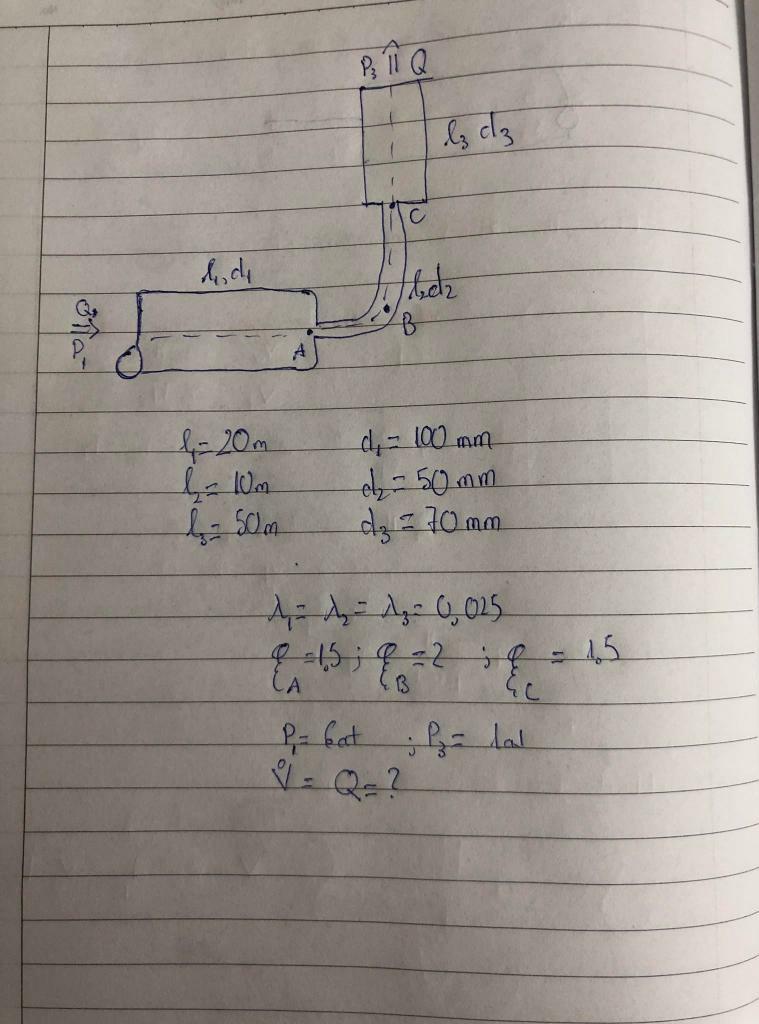 P₃ ⇑ Q
l₃ d₃
C
l₁, d₁
l₂d₂
Q,
B
P₁
A
l₁= 20m d₁= 100 mm
l₂= 10m d₂= 50 mm
l₃= 50m d₃ = 70 mm
λ₁= λ₂= λ₃= 0,025
ξ_A =1,5 ; ξ_B =2 ; ξ_C = 1,5
P₁= 6at ; P₃=
V̊ = Q=?